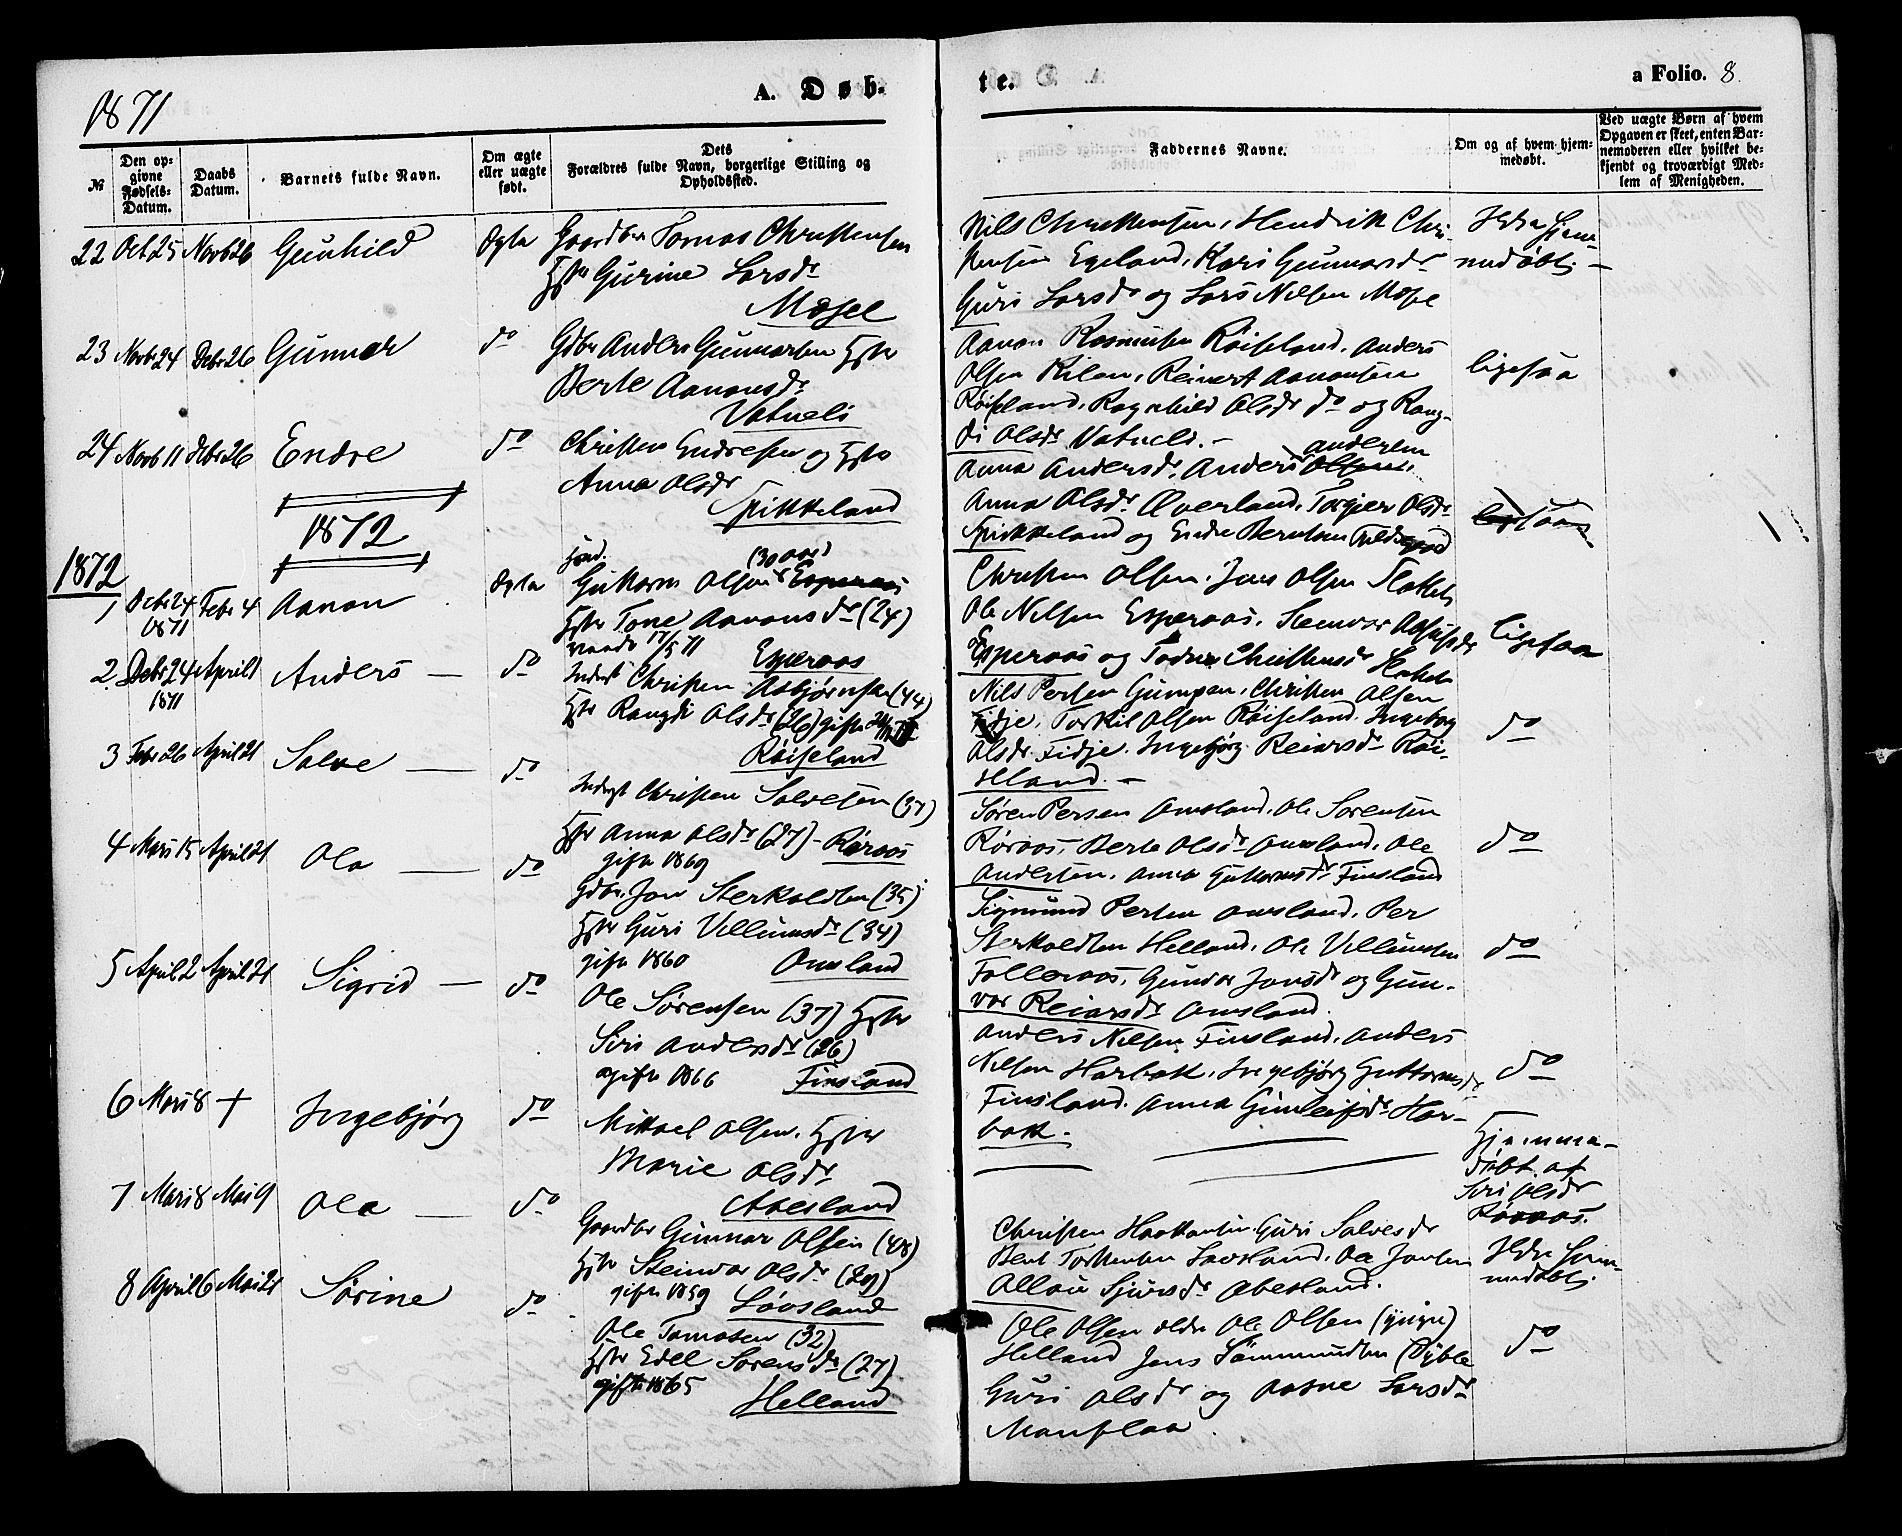 1871
A. Døb-
te.
a Folio. 8.
№
Den op-
givne
Fødsels-
Datum.
Daabs
Datum.
Barnets fulde Navn.
Om ægte
eller uægte
født.
Dets
Forældres fulde Navn, borgerlige Stilling og
Opholdssted.
Faddernes Navne.
Om og af hvem hjem-
medøbt.
Ved uægte Børn af hvem
Opgaven er skeet, enten Bar-
nemoderen eller hvilket be-
kjendt og troværdigt Med-
lem af Menigheden.
22 Oct 25 Novb 26 Gunhild Ægte Gaardbr Tomas Christensen
Hstr Gurine Larsdr
Mosel
Nils Christensen, Hendrik Chri-
stensen Egeland, Kari Gunnarsdr
Guri Larsdr og Lars Nilsen Mosel
Ikke hjem-
medøbt -
23 Novb 24 Debr 26 Gunnar do Gdbr Anders Gunnarsen Hstr
Berte Aanonsdr
Vatneli
Aanon Rasmusen Røiseland, Anders
Olsen Kilen, Reinert Aanonsen
Røiseland, Ragnhild Olsdr do og Rang-
di Olsdr Vatneli. -
ligesaa
24 Novb 11 Debr 26 Endre do Christen Endresen og Hstr
Anna Olsdr
Spikkeland
Anna Andersdr, Anders Olsen
Andersen
Anna Olsdr Øverland, Torgjer Olsdr
Spikkeland og Endre Berntsen
ligesaa
1872
1872
1 Debr 24 1871 Febr 4 Aanon Ægte Guttorm Olsen (30 aar) Esperaas
Hstr Tone Aanonsdr (24)
17/5 71 Esperaas
Christen Olsen, Jens Olsen
Ole Nilsen Esperaas, Steinvor
Esperaas og Todne Christensdr
ligesaa
2 Debr 24 1871 April 1 Anders - do Inderst Christen Asbjørnsen (44)
Hstr Rangdi Olsdr (26) gifte
Røiseland
Nils Persen Gumpen, Christen Olsen
Fidje, Torkil Olsen Røiseland, Ingeborg
Olsdr Fidje, Ingebjørg Reiarsdr Røi-
seland. -
do
3 Febr 26 April 21 Salve - do Inderst Christen Salvesen (37)
Hstr Anna Olsdr (27) - Røraas
gifte 1869
Søren Persen Omsland, Ole Sørensen
Røraas, Berte Olsdr Omsland, Ole
Andersen, Anna Guttormsdr Finsland
do
4 Mars 15 April 21 Ola - do Gdbr. Jon Sterkoldsen (35)
Hstr Guri Villumsdr (34)
gifte 1860 Omsland
Sigmund Persen Omsland, Per
Sterkoldsen Helland, Ole Villumsen
Folleraas, Gunvor Jonsdr og Gun-
vor Reiarsdr Omsland.
do
5 April 2 April 21 Sigrid - do Ole Sørensen (37) Hstr
Siri Andersdr (26)
gifte 1866 Finsland
Anders Nilsen Finsland, Anders
Nilsen Harbak, Ingebjørg Guttormsdr
Finsland, Anna Gunleifsdr Har-
bak.
do
6 Mars 8 + Ingebjørg do Mikael Olsen, Hstr
Marie Olsdr
Abesland
Hjemme-
døbt af
Siri Olsdr
Røraas.
7 Mars 8 Mai 9 Ole - do Gaardbr Gunnar Olsen (48)
Hstr Steinvor Olsdr (29)
gifte 1859 Løvsland
Christen Haakonsen, Guri Salvesdr
Bent Torkelsen Løvsland, Ole Jonsen
Sjursdr Abesland.
Ikke hjem-
medøbt.
8 April 6 Mai 21 Sørine do Ole Tomasen (32)
Hstr Edel Sørensdr (27)
gifte 1865
Helland
Ole Olsen eldre Ole Olsen (yngre)
Helland Jens Sammundsen Dyble
Guri Olsdr og Aasne Larsdr
Monflaa
do